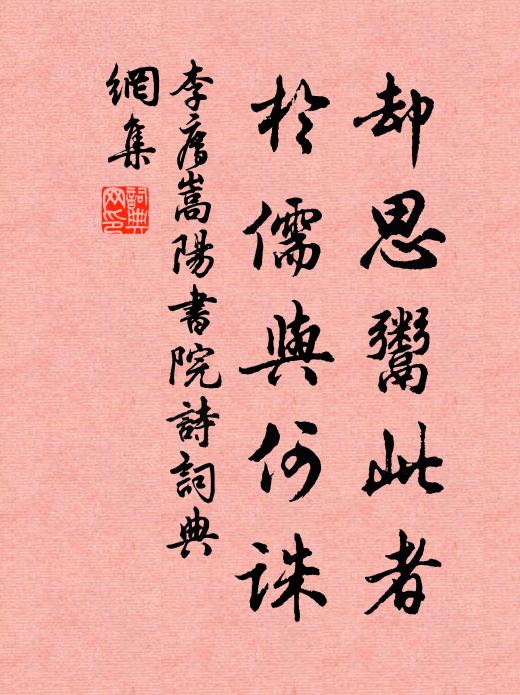 却思鬻此者
於儒與何誅
李廌嵩陽書院詩詞典
網集
詞典網印